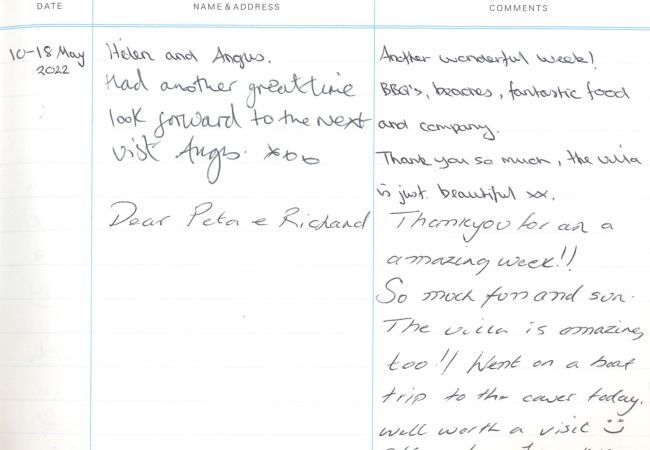 DATE
NAME & ADDRESS
COMMENTS
10-18 May
2022
Helen and Angus.
Had another great time
look forward to the next
visit Angus. xoo
Another wonderful week!
BBQ's, beaches, fantastic food
and company.
Thank you so much, the villa
is just beautiful xx.
Dear Peta & Richard
Thankyou for an a
amazing week!!
So much fun and sun.
The villa is amazing
too!! Went on a boat
trip to the caves today.
well worth a visit ☺